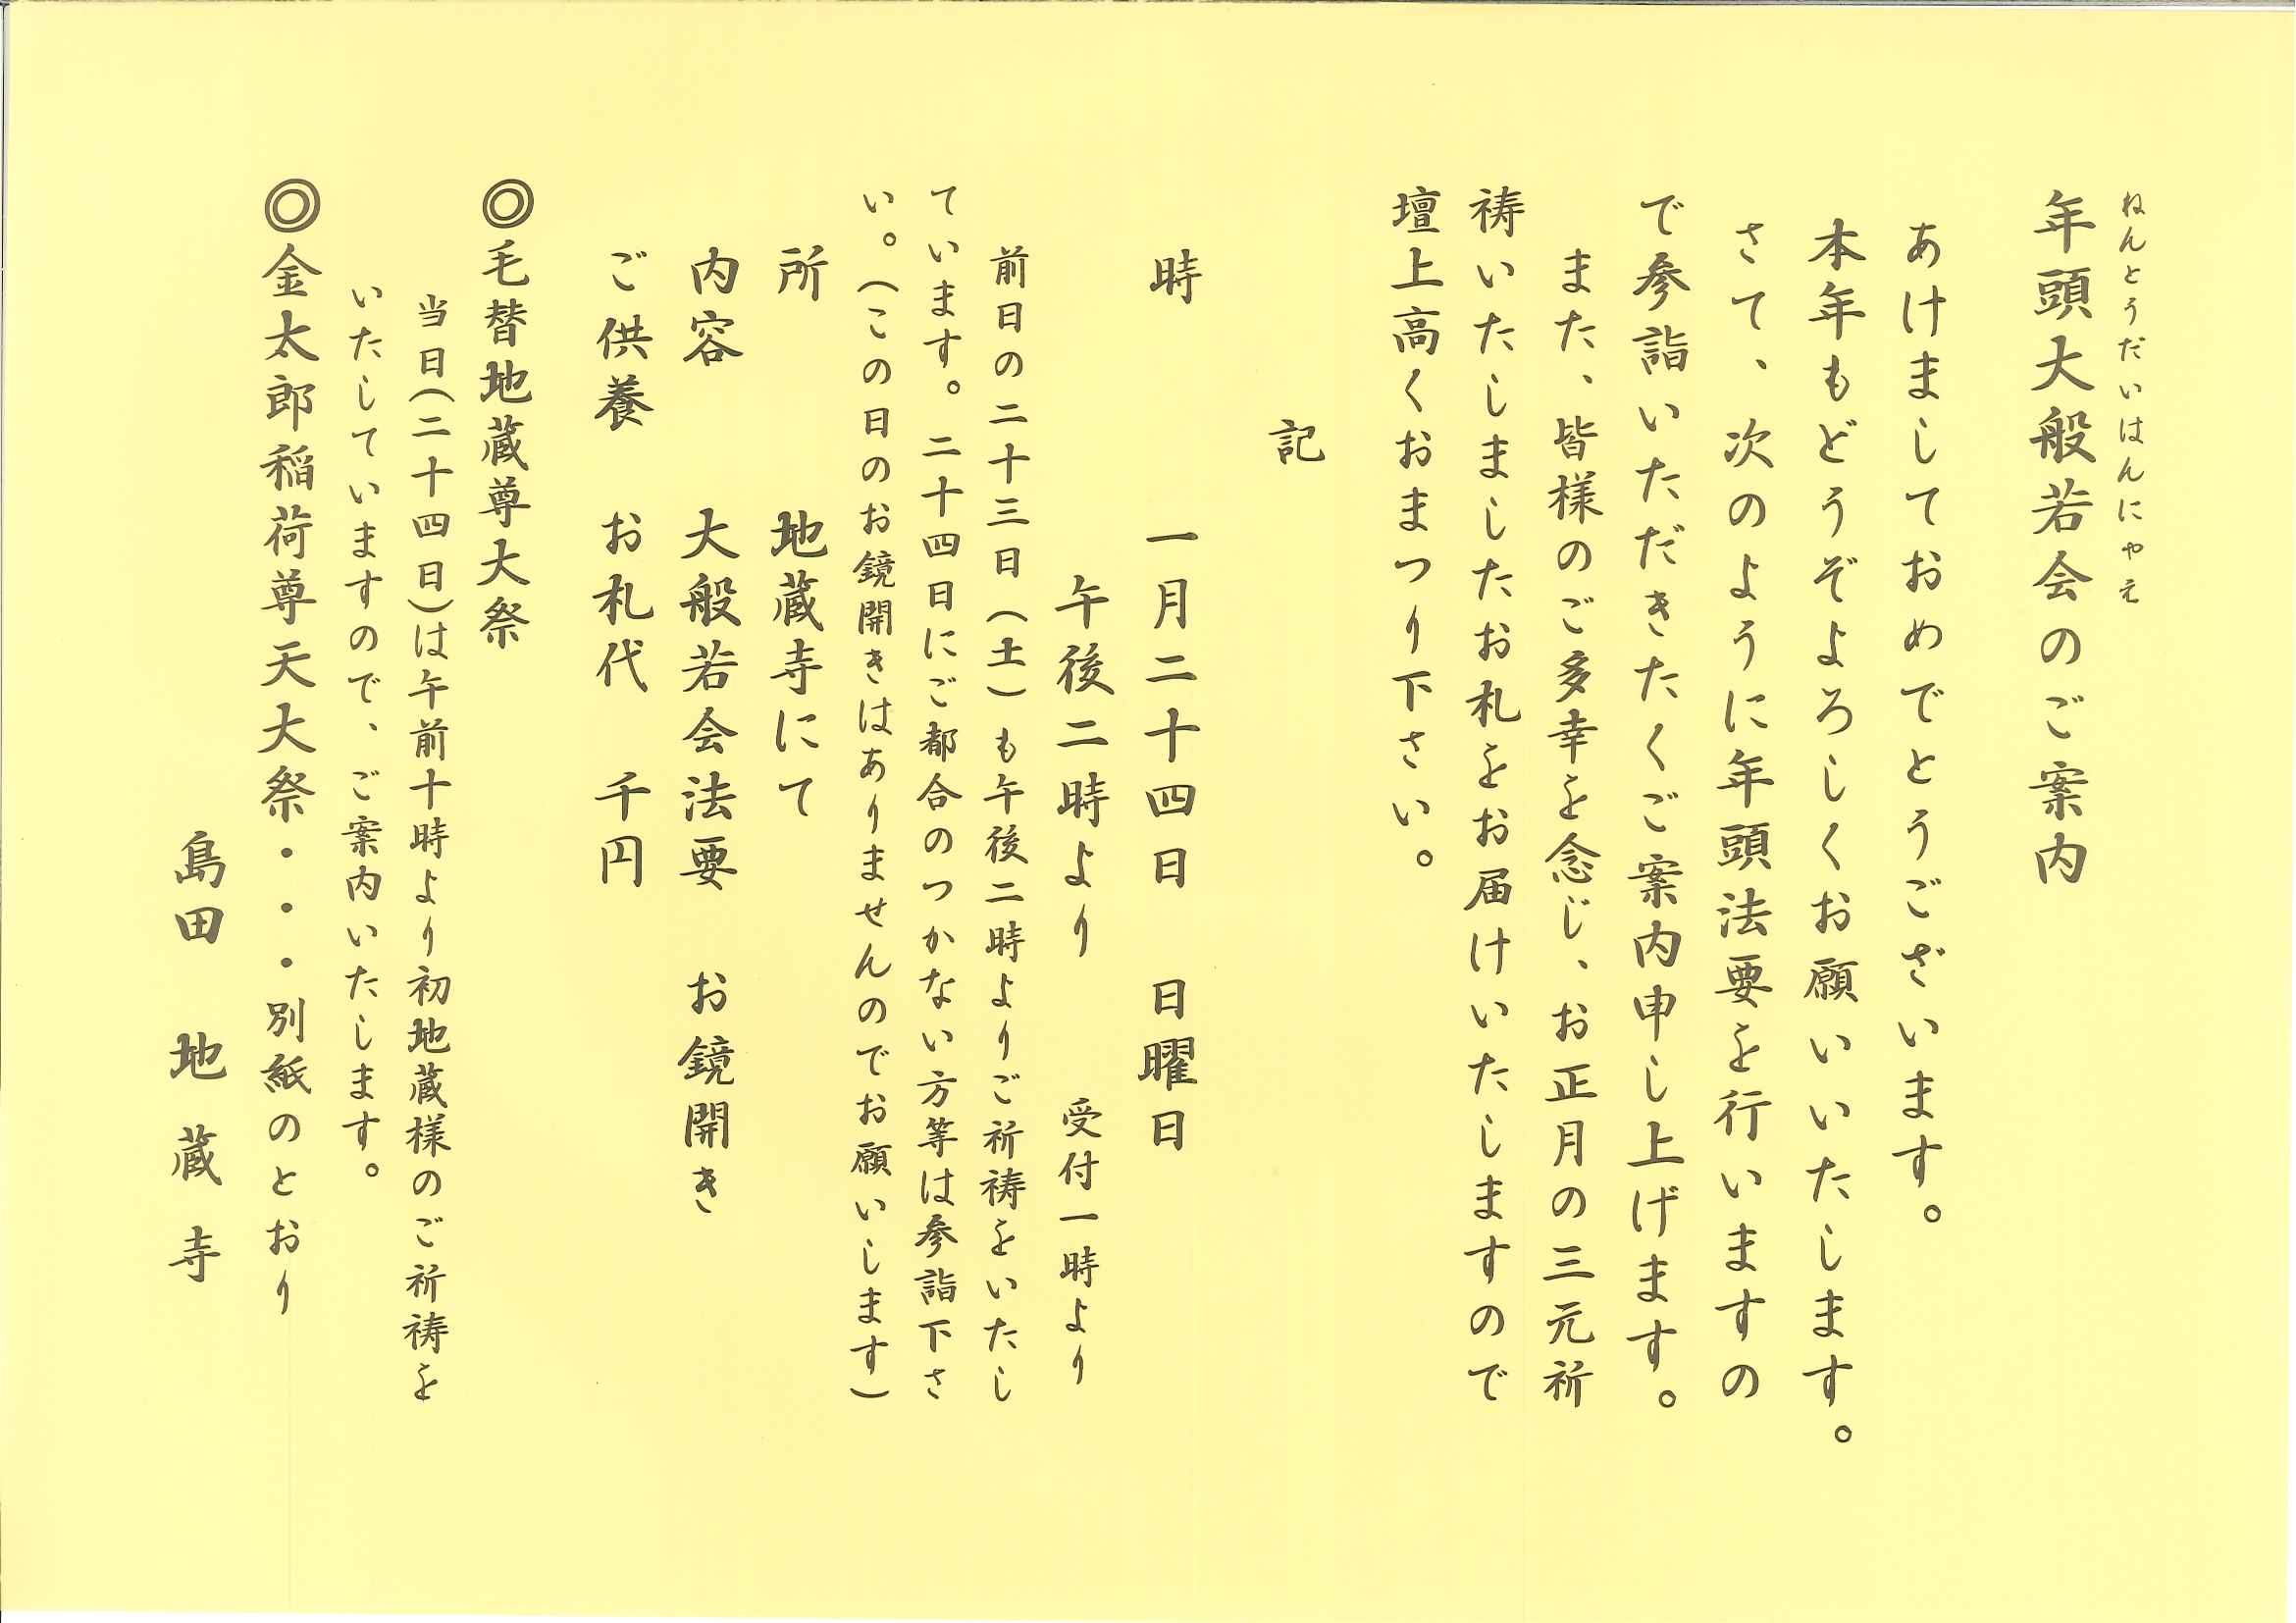 ねんとうだいはんにゃえ
年頭大般若会のご案内
あけましておめでとうございます。
本年もどうぞよろしくお願いいたします。
さて、次のように年頭法要を行いますの
で参詣いただきたくご案内申し上げます。
また、皆様のご多幸を念じ、お正月の三元祈
祷いたしましたお札をお届けいたしますので
壇上高くおまつり下さい。
記
時　一月二十四日　日曜日
午後二時より　受付一時より
前日の二十三日（土）も午後二時よりご祈祷をいたし
ています。二十四日にご都合のつかない方等は参詣下さ
い。（この日のお鏡開きはありませんのでお願いします）
所　地蔵寺にて
内容　大般若会法要　お鏡開き
ご供養　お札代　千円
◎毛替地蔵尊大祭
当日（二十四日）は午前十時より初地蔵様のご祈祷を
いたしていますので、ご案内いたします。
◎金太郎稲荷尊天大祭・・・別紙のとおり
島田　地蔵寺